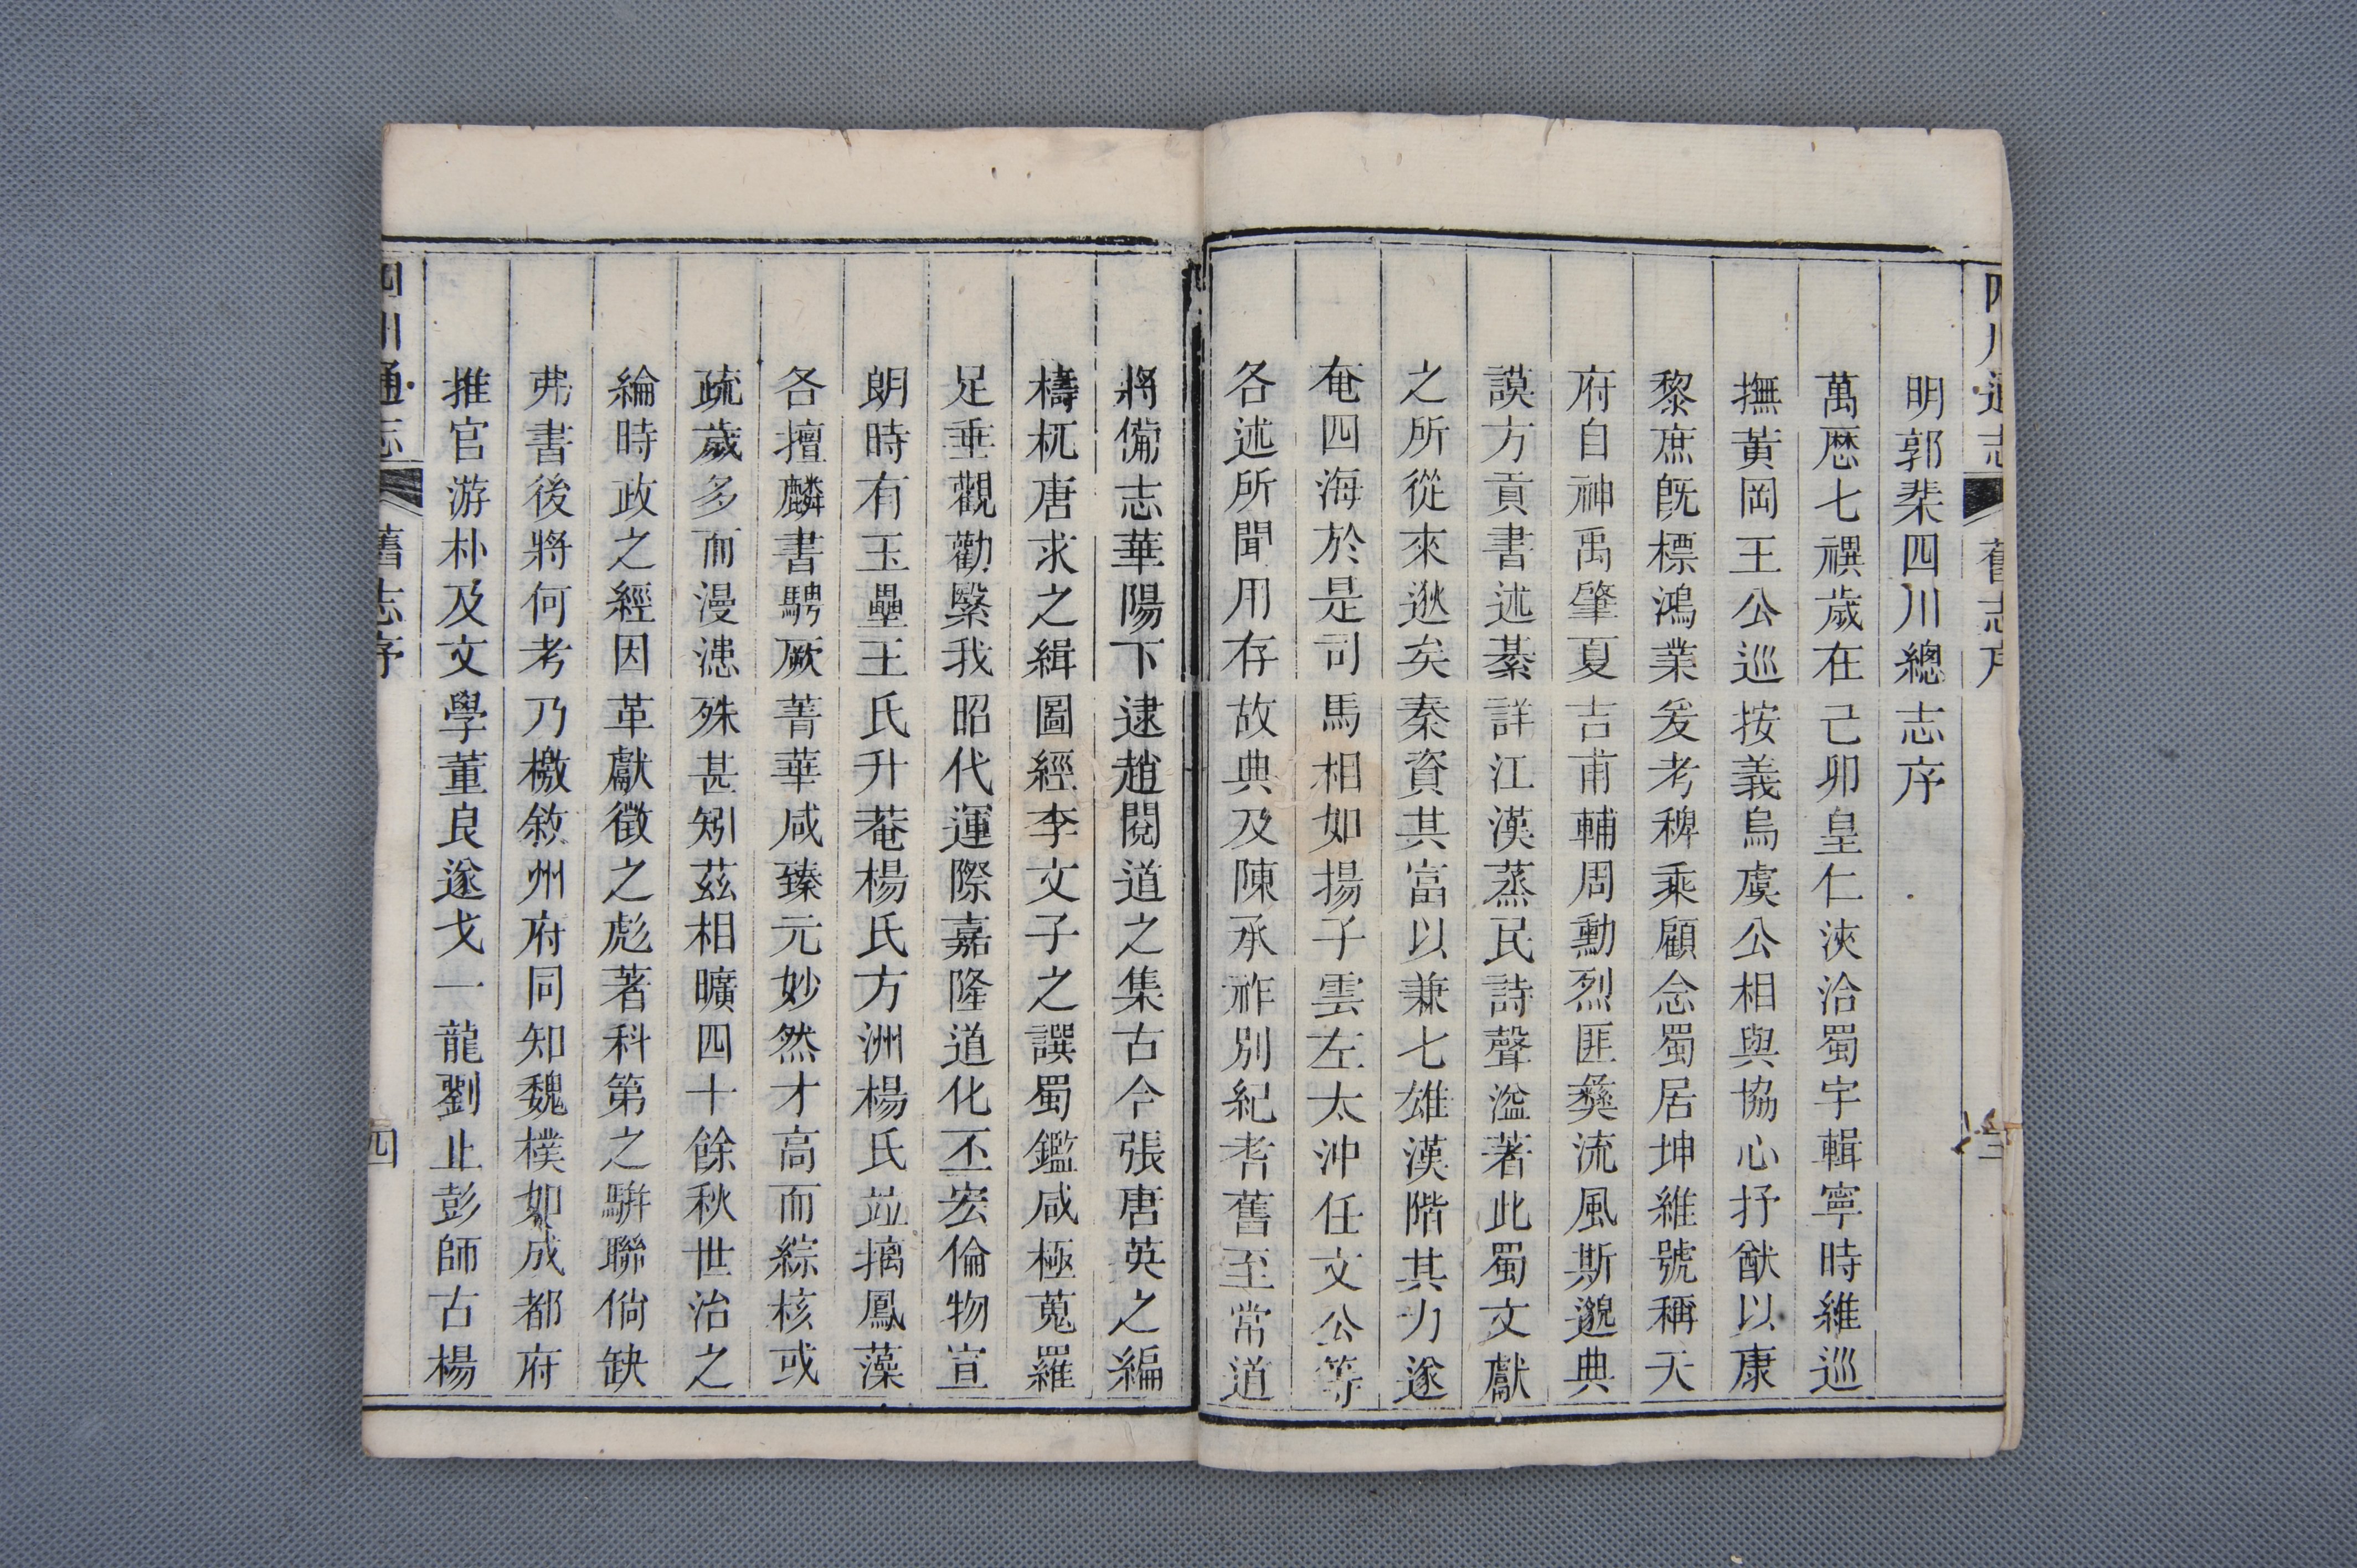 四川通志 舊志序 三
明郭棐四川總志序
萬厯七禩歲在己卯皇仁浹洽蜀宇輯寧時維巡
撫黃岡王公巡按義烏虞公相與協心抒猷以康
黎庶旣標鴻業爰考稗乘顧念蜀居坤維號稱天
府自神禹肇夏吉甫輔周勳烈匪彞流風斯邈典
謨方貢書述綦詳江漢蒸民詩聲溢著此蜀文獻
之所從來逖矣秦資其富以兼七雄漢階其力遂
奄四海於是司馬相如揚子雲左太沖任文公等
各述所聞用存故典及陳承祚別紀耆舊至常道
將備志華陽下逮趙閱道之集古今張唐英之編
檮杌唐求之緝圖經李文子之譔蜀鑑咸極蒐羅
足垂觀勸緊我昭代運際嘉隆道化丕宏倫物宣
朗時有玉壘王氏升菴楊氏方洲楊氏竝摛鳳藻
各擅麟書騁厥菁華咸臻元妙然才高而綜核或
疏歲多而漫漶殊甚矧茲相曠四十餘秋世治之
綸時政之經因革獻徵之彪著科第之騈聯倘缺
弗書後將何考乃檄敘州府同知魏樸如成都府
推官游朴及文學董良遂戈一龍劉止彭師古楊
四川通志 舊志序 四